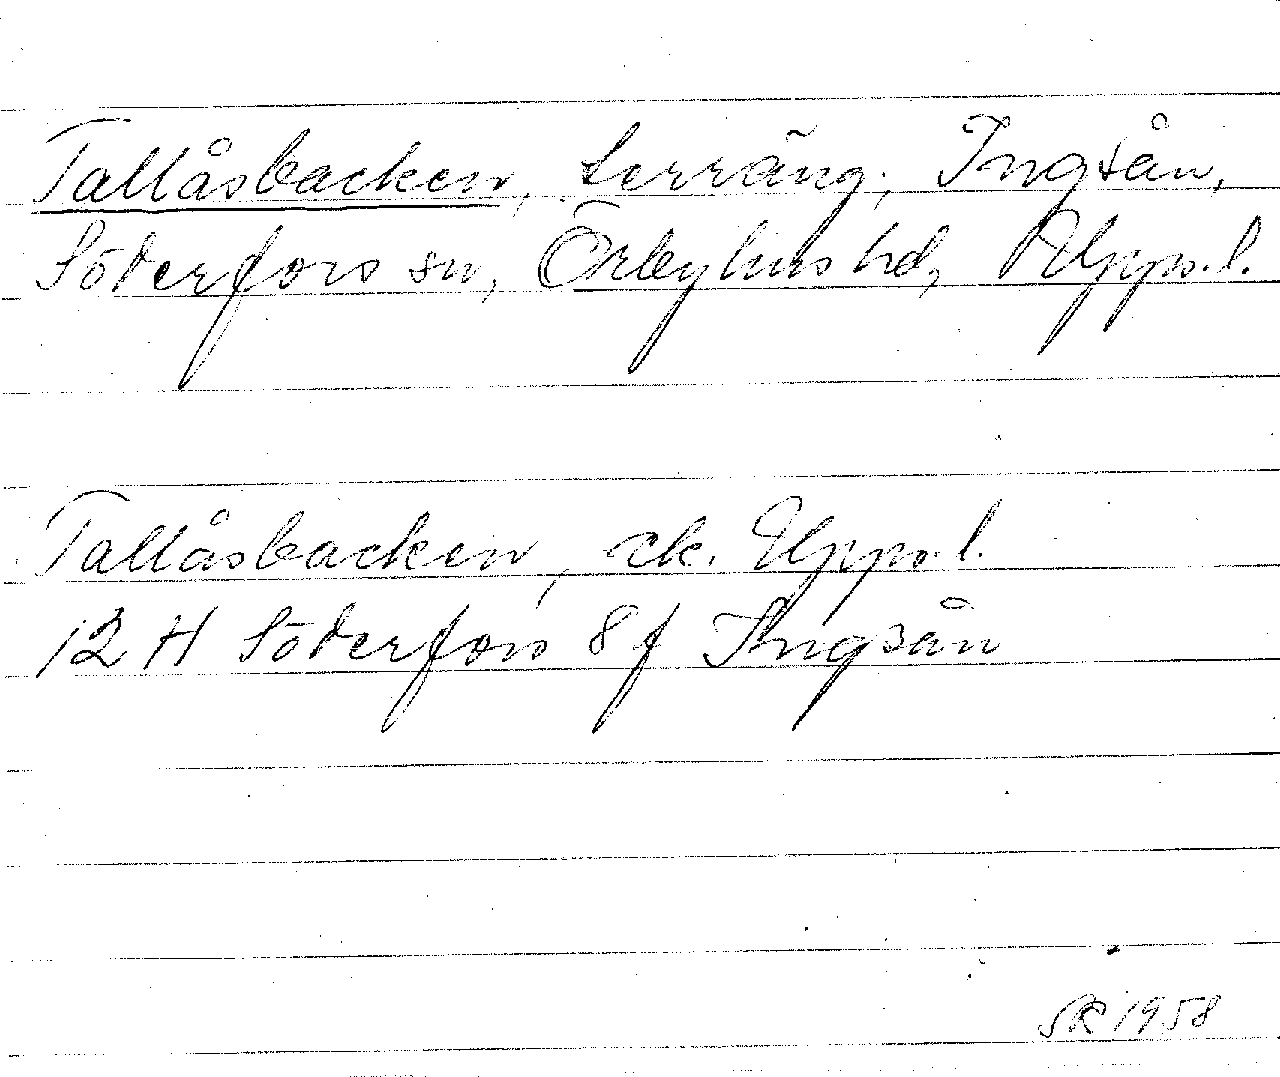 Tallåsbacken, terräng, Ingsån,
Söderfors sn, Örbyhus hd, Upps.l.
Tallåsbacken, ek. Upps.l.
12 H Söderfors 8 f Ingsån
SR 1958